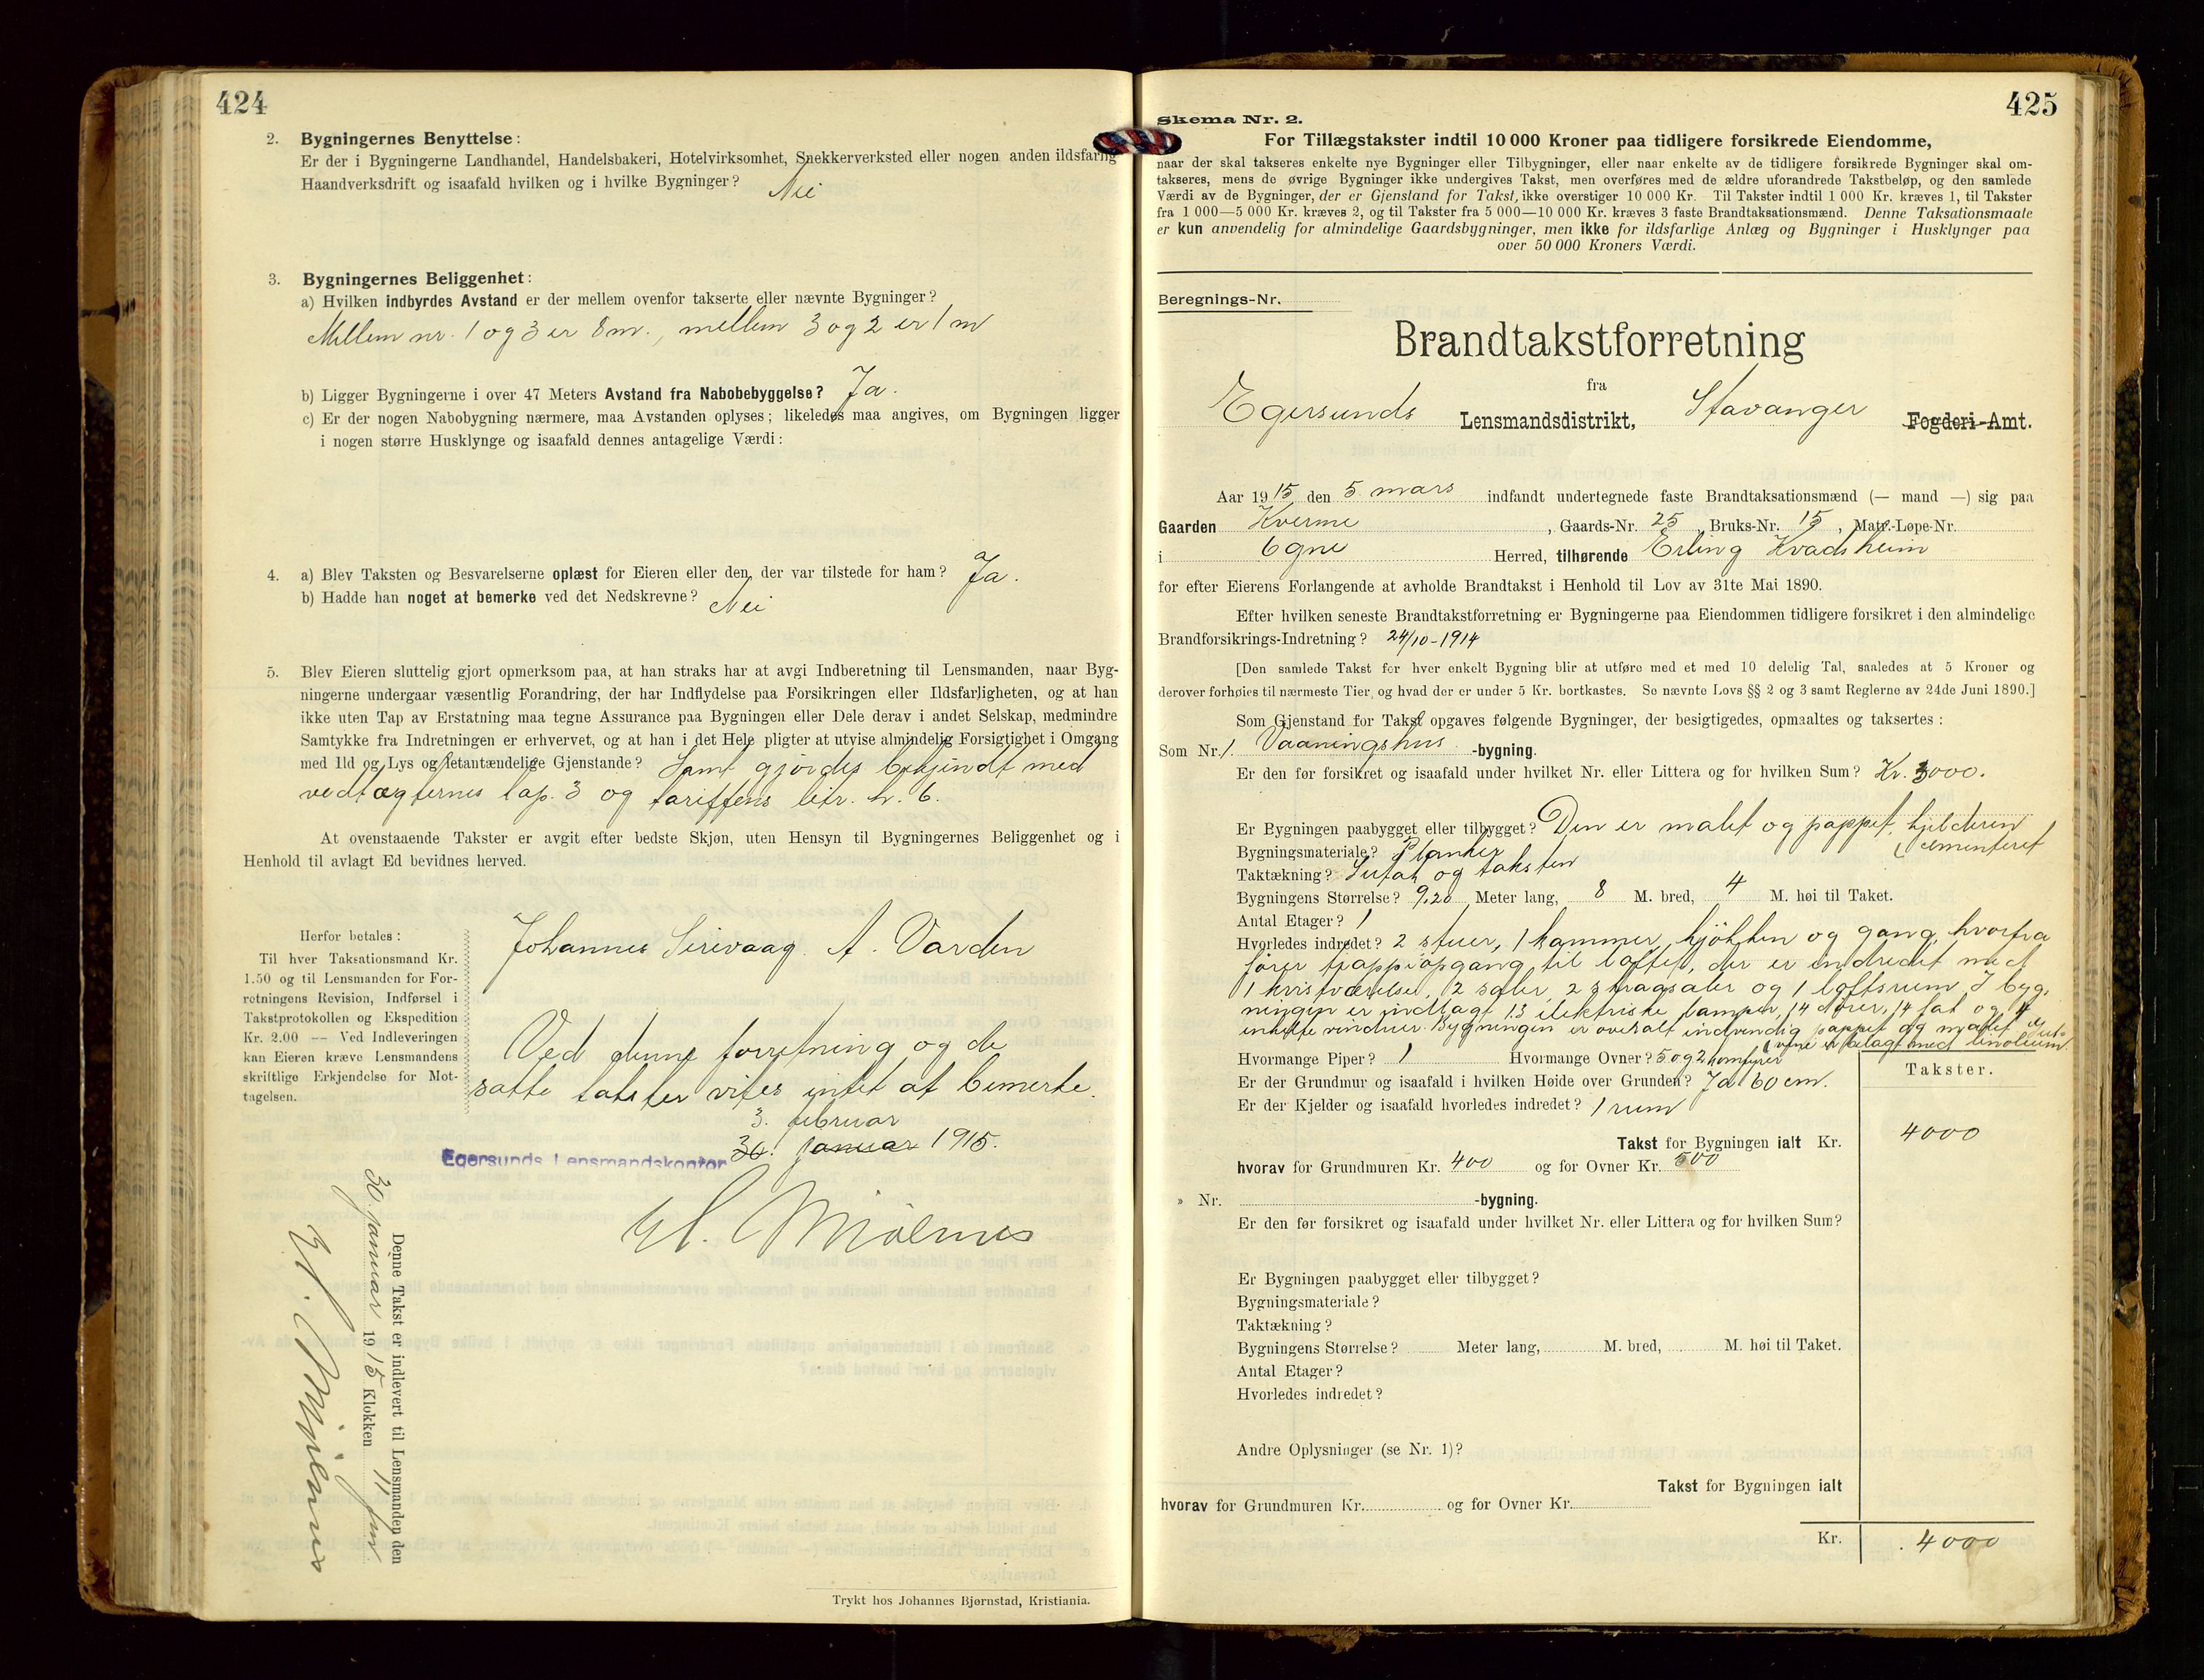 424
2. Bygningernes Benyttelse:
Er der i Bygningerne Landhandel, Handelsbakeri, Hotelvirksomhet, Snekkerverksted eller nogen anden ildsfarlig
Haandverksdrift og isaafald hvilken og i hvilke Bygninger? Nei
3. Bygningernes Beliggenhet:
a) Hvilken indbyrdes Avstand er der mellem ovenfor takserte eller nævnte Bygninger?
Mellem nr. 1 og 3 er 8 m., mellem 3 og 2 er 1 m
b) Ligger Bygningerne i over 47 Meters Avstand fra Nabobebyggelse? Ja.
c) Er der nogen Nabobygning nærmere, maa Avstanden oplyses; likeledes maa angives, om Bygningen ligger
i nogen større Husklynge og isaafald dennes antagelige Værdi:
4. a) Blev Taksten og Besvarelserne oplæst for Eieren eller den, der var tilstede for ham? Ja.
b) Hadde han noget at bemerke ved det Nedskrevne? Nei
5. Blev Eieren sluttelig gjort opmerksom paa, at han straks har at avgi Indberetning til Lensmanden, naar Byg-
ningerne undergaar væsentlig Forandring, der har Indflydelse paa Forsikringen eller Ildsfarligheten, og at han
ikke uten Tap av Erstatning maa tegne Assurance paa Bygningen eller Dele derav i andet Selskap, medmindre
Samtykke fra Indretningen er erhvervet, og at han i det Hele pligter at utvise almindelig Forsigtighet i Omgang
med Ild og Lys og letantændelige Gjenstande? Samt gjordes bekjendt med
vedtægternes kap. 3 og tariffens litr. h. 6.
At ovenstaaende Takster er avgit efter bedste Skjøn, uten Hensyn til Bygningernes Beliggenhet og i
Henhold til avlagt Ed bevidnes herved.
Herfor betales:
Til hver Taksationsmand Kr.
1.50 og til Lensmanden for For-
retningens Revision, Indførsel i
Takstprotokollen og Ekspedition
Kr. 2.00 — Ved Indleveringen
kan Eieren kræve Lensmandens
skriftlige Erkjendelse for Mot-
tagelsen.
Johannes Sirevaag. A. Varden
Ved denne forretning og de
satte takster vites intet at bemerke.
3. februar
Egersunds Lensmandskontor 30. januar 1915.
H. Mjølnes
Denne Takst er indlevert til Lensmanden den
30. januar 1915 Klokken 11 fm
H. Mjølnes
Trykt hos Johannes Bjørnstad, Kristiania.
425
Skema Nr. 2.
For Tillægstakster indtil 10 000 Kroner paa tidligere forsikrede Eiendomme,
naar der skal takseres enkelte nye Bygninger eller Tilbygninger, eller naar enkelte av de tidligere forsikrede Bygninger skal om-
takseres, mens de øvrige Bygninger ikke undergives Takst, men overføres med de ældre uforandrede Takstbeløp, og den samlede
Værdi av de Bygninger, der er Gjenstand for Takst, ikke overstiger 10 000 Kr. Til Takster indtil 1 000 Kr. kræves 1, til Takster
fra 1 000—5 000 Kr. kræves 2, og til Takster fra 5 000—10 000 Kr. kræves 3 faste Brandtaksationsmænd. Denne Taksationsmaate
er kun anvendelig for almindelige Gaardsbygninger, men ikke for ildsfarlige Anlæg og Bygninger i Husklynger paa
over 50 000 Kroners Værdi.
Beregnings-Nr.
Brandtakstforretning
fra
Egersunds Lensmandsdistrikt, Stavanger Fogderi-Amt.
Aar 1915 den 5 mars indfandt undertegnede faste Brandtaksationsmænd (— mand —) sig paa
Gaarden Kverme, Gaards-Nr. 25, Bruks-Nr. 15, Matr.-Løpe-Nr.
i Ogne Herred, tilhørende Erling Kvadsheim
for efter Eierens Forlangende at avholde Brandtakst i Henhold til Lov av 31te Mai 1890.
Efter hvilken seneste Brandtakstforretning er Bygningerne paa Eiendommen tidligere forsikret i den almindelige
Brandforsikrings-Indretning? 24/10-1914
[Den samlede Takst for hver enkelt Bygning blir at utføre med et med 10 delelig Tal, saaledes at 5 Kroner og
derover forhøies til nærmeste Tier, og hvad der er under 5 Kr. bortkastes. Se nævnte Lovs §§ 2 og 3 samt Reglerne av 24de Juni 1890.]
Som Gjenstand for Takst opgaves følgende Bygninger, der besigtigedes, opmaaltes og taksertes:
Som Nr. 1. Vaaningshus -bygning.
Er den før forsikret og isaafald under hvilket Nr. eller Littera og for hvilken Sum? Kr. 3000.
Er Bygningen paabygget eller tilbygget? Den er malet og pappet, kjelderen
cementeret
Bygningsmateriale? Planker
Taktækning? Sutak og taksten
Bygningens Størrelse? 9,20 Meter lang, 8 M. bred, 4 M. høi til Taket.
Antal Etager? 1
Hvorledes indredet? 2 stuer, 1 kammer, kjøkken og gang, hvorfra
fører trappeopgang til loftet, der er indredet med
1 kvistværelse, 2 saler, 2 skraasaler og 1 loftsrum. I byg-
ningen er indlagt 13 elektriske lamper, 14 dører, 14 fat og 4
enkelte vinduer. Bygningen er overalt indvendig pappet og malet. Gul-
vene er belagt med linoleum.
Hvormange Piper? 1 Hvormange Ovner? 5 og 2 komfyrer
Er der Grundmur og isaafald i hvilken Høide over Grunden? Ja 60 cm.
Er der Kjelder og isaafald hvorledes indredet? 1 rum
Takster.
Takst for Bygningen ialt Kr. 4000
hvorav for Grundmuren Kr. 400 og for Ovner Kr. 500
» Nr. -bygning.
Er den før forsikret og isaafald under hvilket Nr. eller Littera og for hvilken Sum?
Er Bygningen paabygget eller tilbygget?
Bygningsmateriale?
Taktækning?
Bygningens Størrelse? Meter lang, M. bred, M. høi til Taket.
Antal Etager?
Hvorledes indredet?
Andre Oplysninger (se Nr. 1)?
Takst for Bygningen ialt
hvorav for Grundmuren Kr. og for Ovner Kr.
Kr. 4000